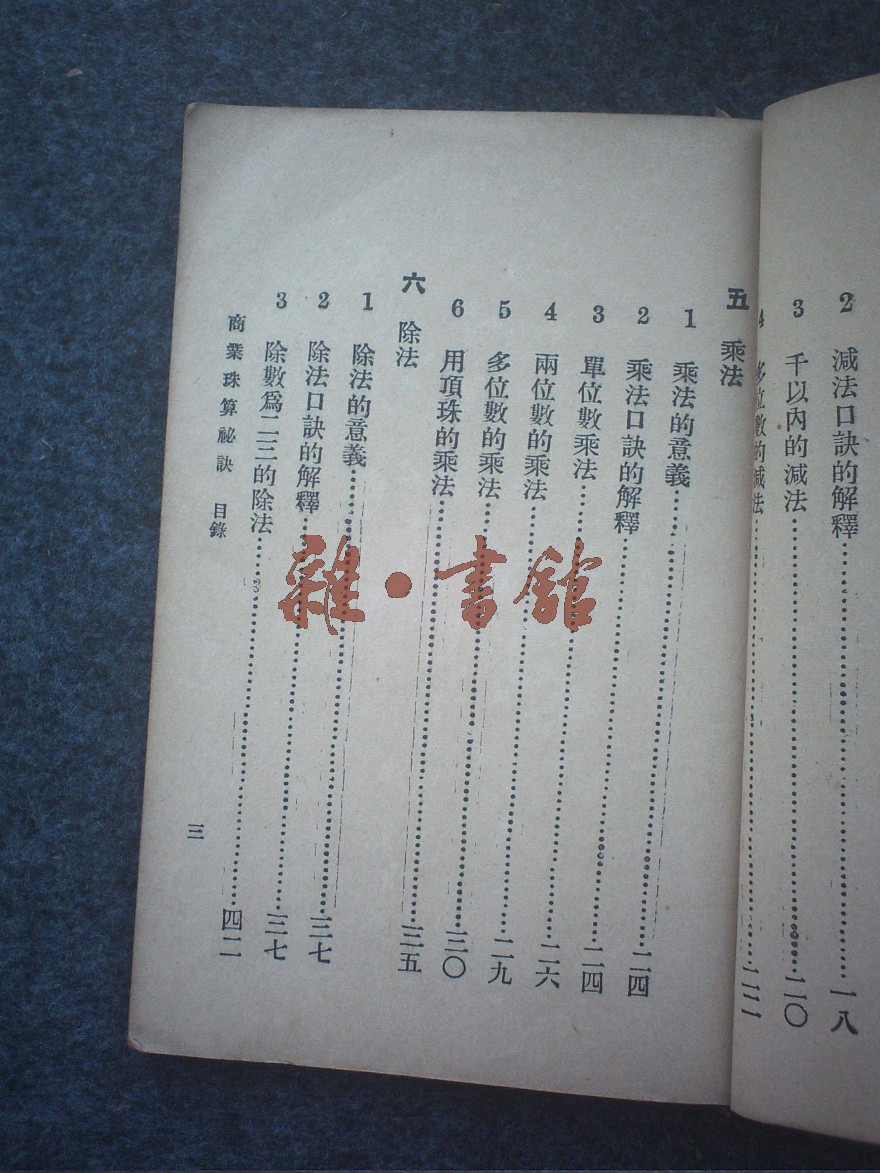 2 減法口訣的解釋……一八
3 千以內的減法……二〇
4 多位數的減法……二二
五 乘法
1 乘法的意義……二四
2 乘法口訣的解釋……二四
3 單位數乘法……二六
4 兩位數的乘法……二九
5 多位數的乘法……三〇
6 用頂珠的乘法……三五
六 除法
1 除法的意義……三七
2 除法口訣的解釋……三七
3 除數爲二三的除法……四二
商業珠算祕訣 目錄
三
雜·書館